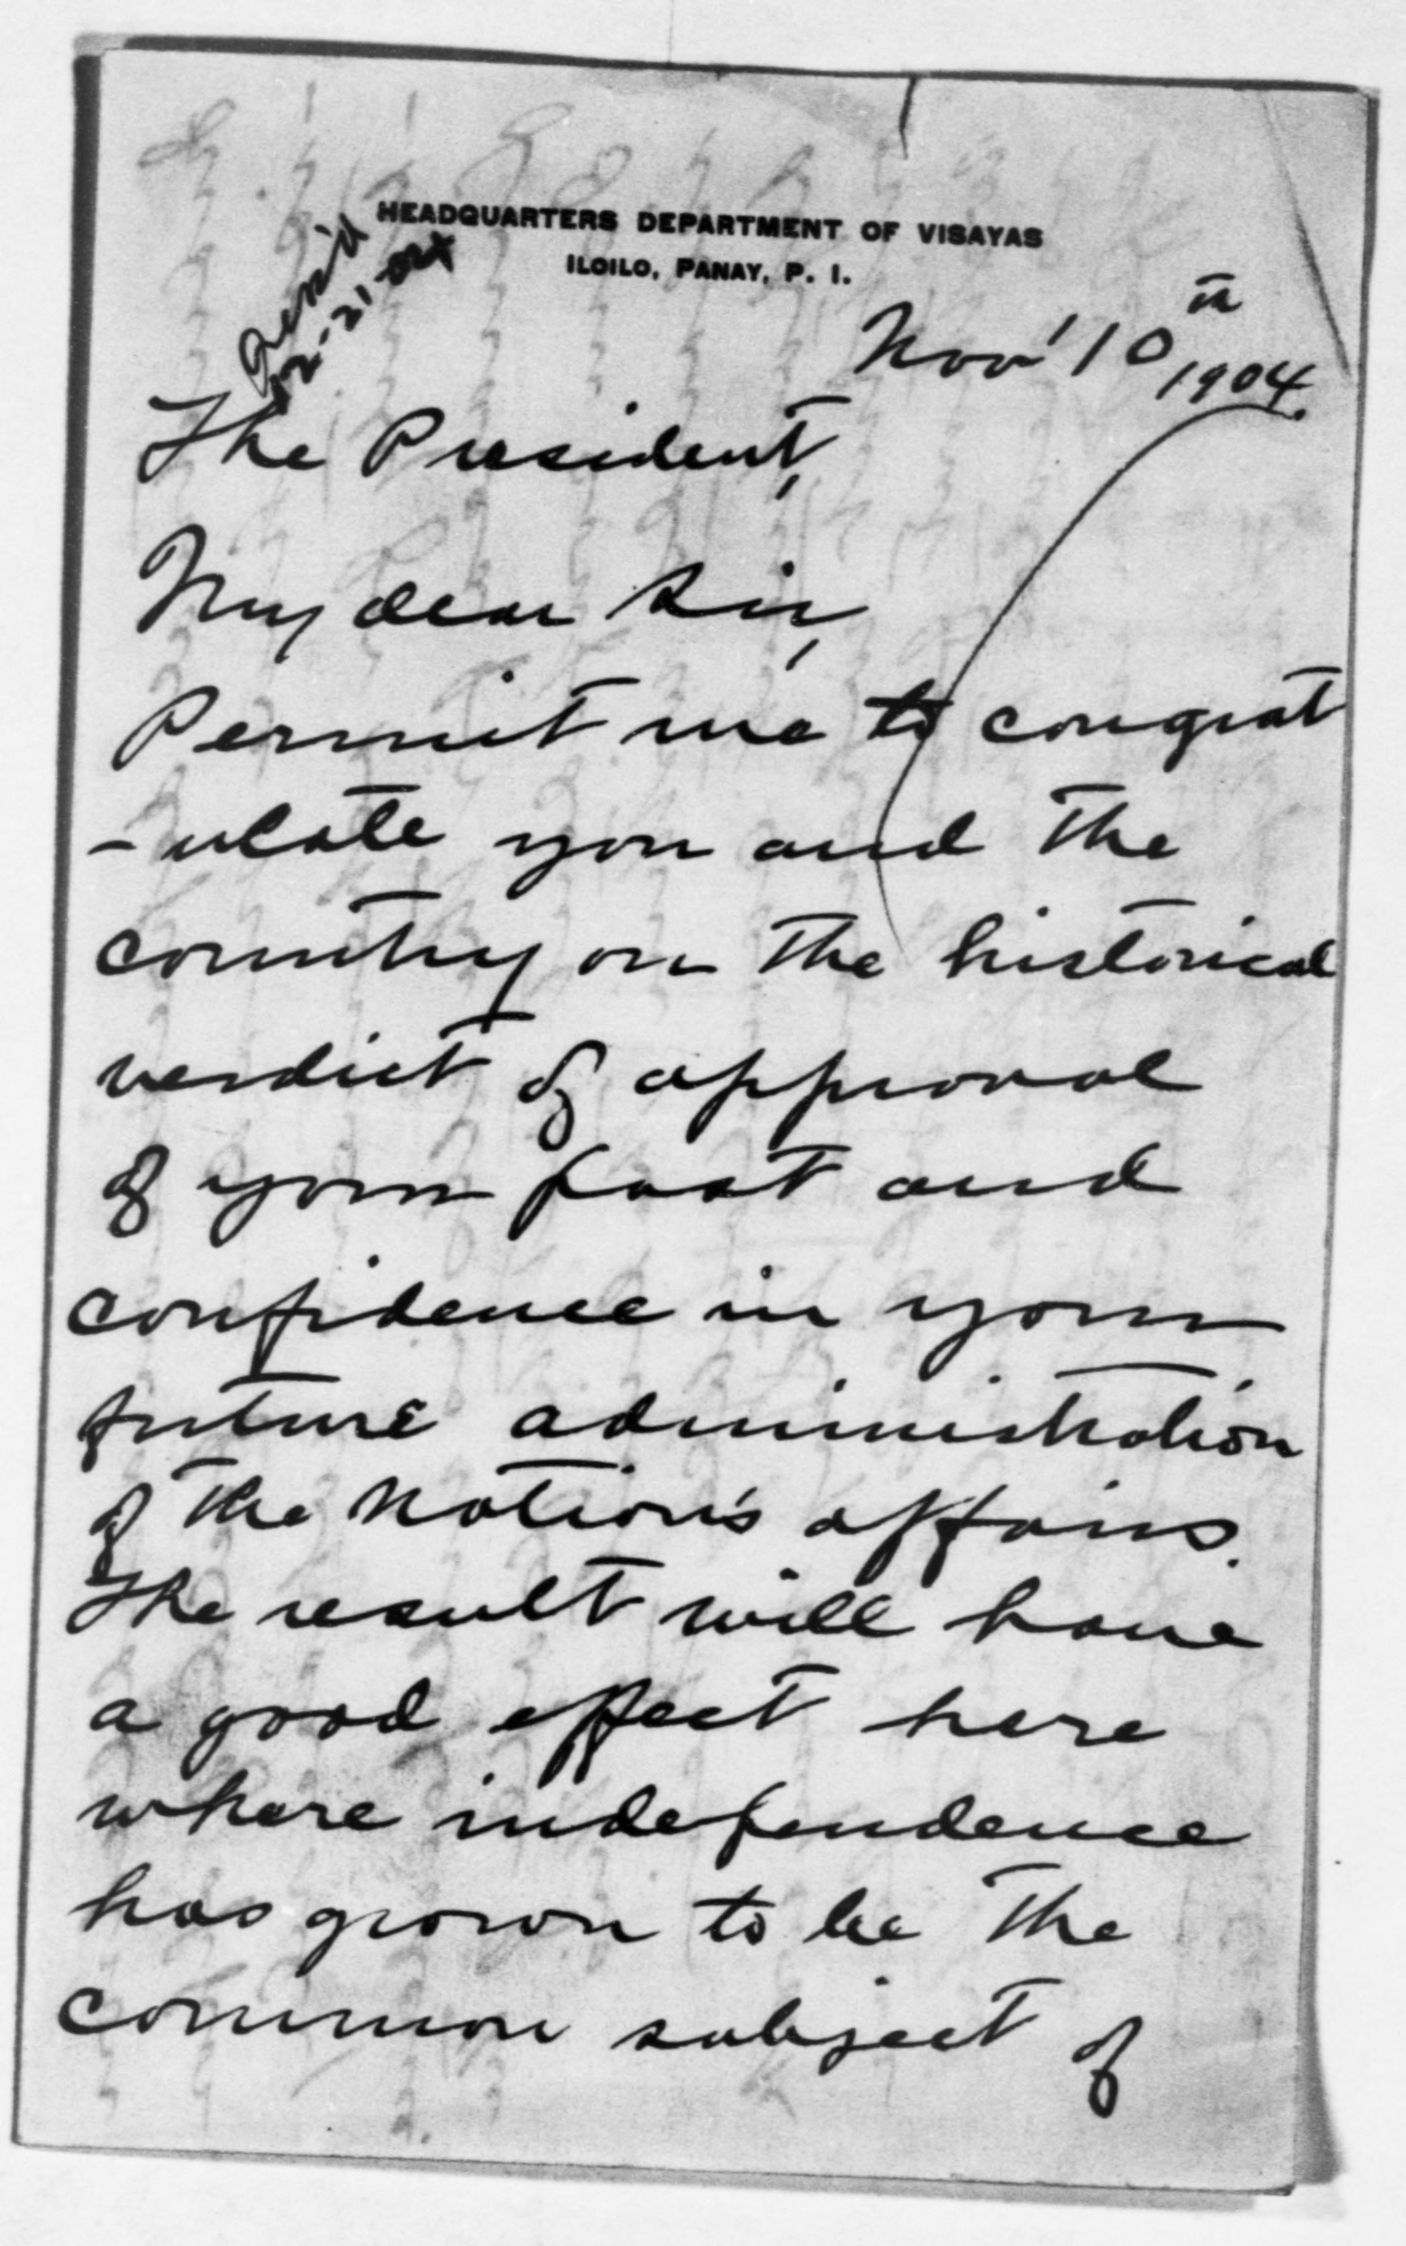 HEADQUARTERS DEPARTMENT OF VISAYAS
ILOILO, PANAY, P. I.
Ack'd
12-21-04
Nov' 10th 1904.
The President,
My dear Sir,
Permit me to congrat
-ulate you and the
country on the historical
verdict of approval
of your past and
confidence in your
future administration
of the Nation's affairs.
The result will have
a good effect here
where independence
has grown to be the
common subject of